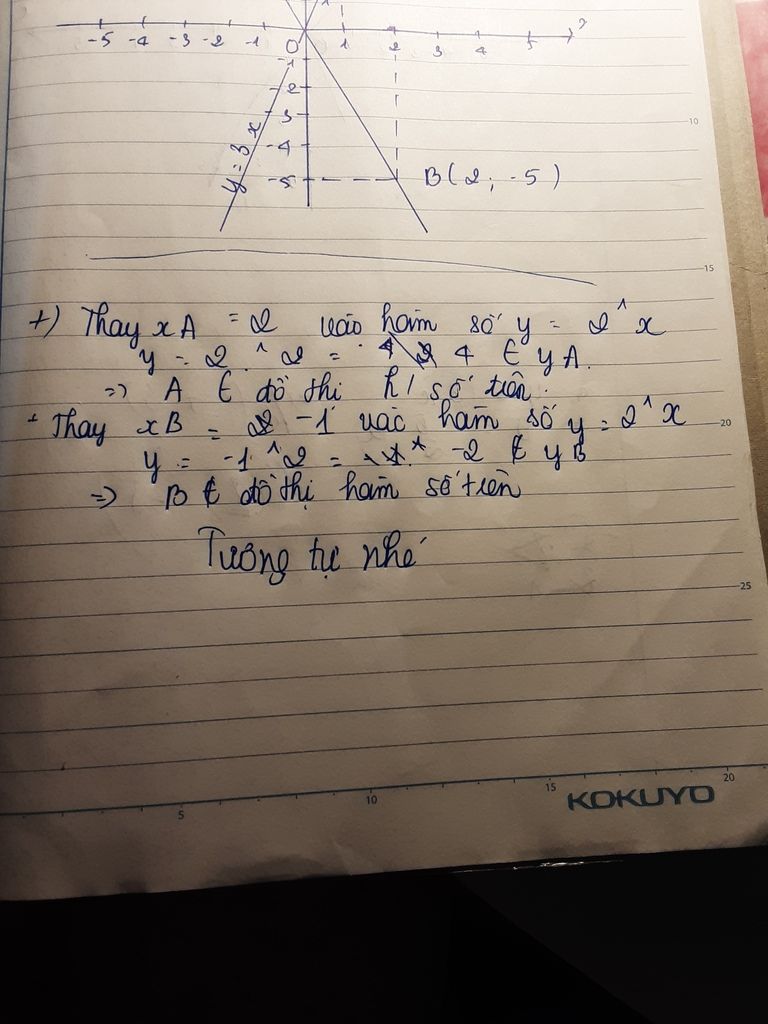 -5 -4 -3 -2 -1 0 1 2 3 4 5
-1
-2
-3
-4
-5
y = 3x
B(2; -5)
10
15
+) Thay xA = 2 vào hàm số y = 2^x
y = 2 ^ 2 = 4 ∈ yA.
=> A ∈ đồ thị h/số trên.
+ Thay xB = -1 vào hàm số y = 2^x
20
y = -1 ^ 2 = -2 ∉ yB
=> B ∉ đồ thị hàm số trên
Tương tự nhé
25
5 10 15 20
KOKUYO